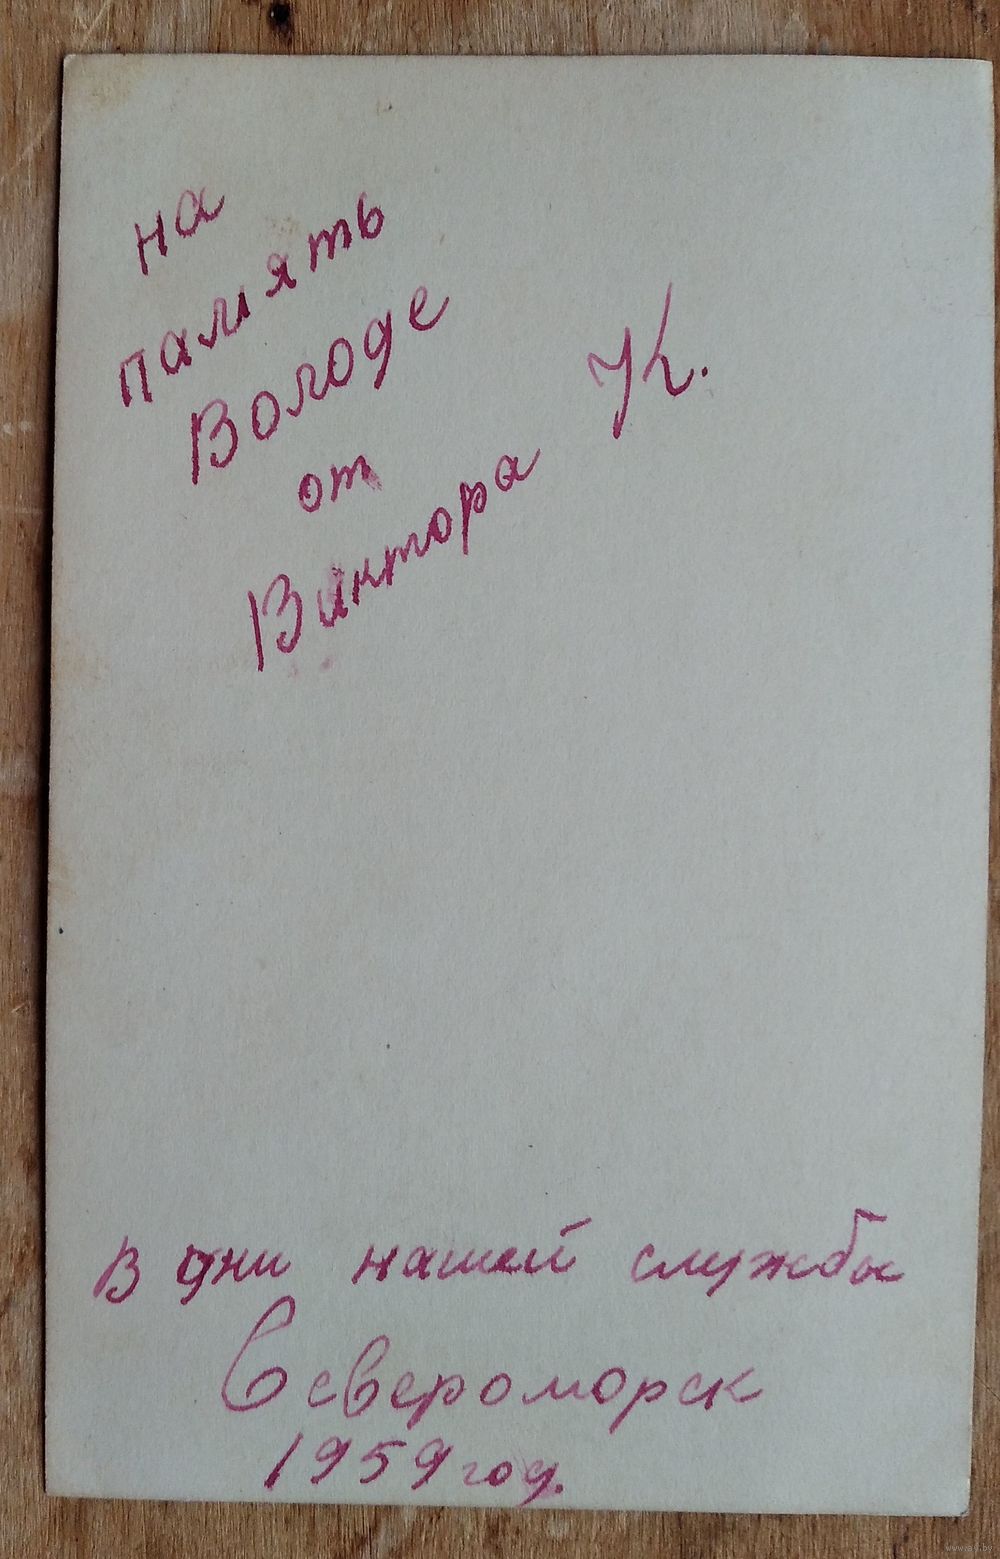 на
память
Володе
от
Виктора К.
В дни нашей службы
Североморск
1959 год.
www.ay.by